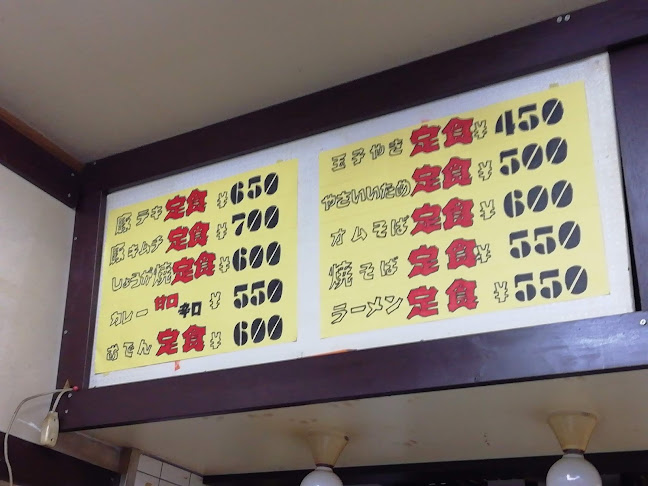 豚テキ定食 ¥650
豚キムチ定食 ¥700
しょうが焼定食 ¥600
カレー 甘口 辛口 ¥550
おでん定食 ¥600
玉子やき定食 ¥450
やさいいため定食 ¥500
オムそば定食 ¥600
焼そば定食 ¥550
ラーメン定食 ¥550